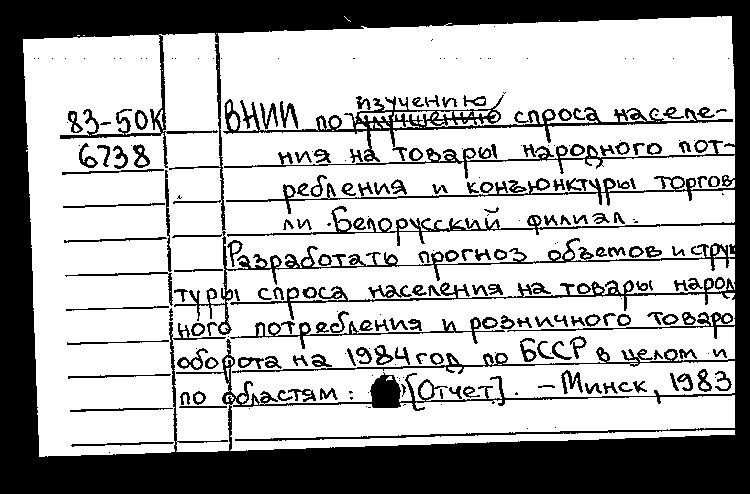 изучению
83-50К ВНИИ по улучшению спроса населе-
6738 ния на товары народного пот-
ребления и конъюнктуры торгов
ли. Белорусский филиал.
Разработать прогноз объемов и струк
туры спроса населения на товары народ
ного потребления и розничного товаро
оборота на 1984 год по БССР в целом и
по областям: [Отчет]. - Минск, 1983